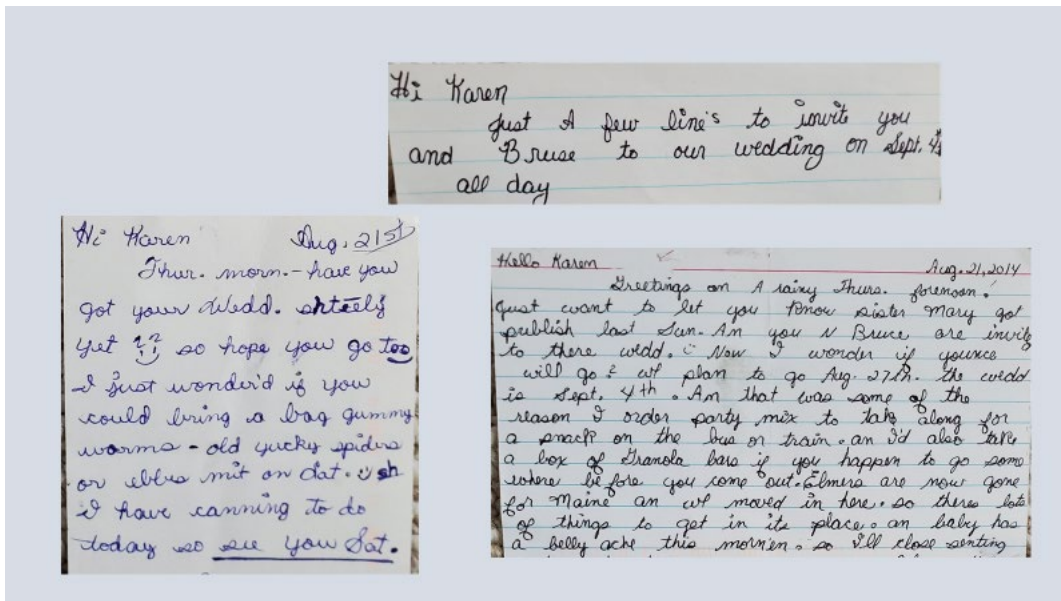 Hi Karen
Just A few line's to invite you
and Bruse to our wedding on Sept. 4th
all day
Hi Karen Aug. 21st
Thur. morn. - have you
got your Wedd.
yet ?? so hope you go too
I just wonder'd if you
could bring a bag gummy
worms - old yucky spiders
or ebbus mit on Sat. sh
I have canning to do
today so see you Sat.
Hello Karen Aug. 21, 2014
Greetings on A rainy Thurs. forenoon.
Just want to let you know sister Mary got
publish last Sun. An you N Bruce are invite
to there wedd. Now I wonder if younce
will go? wf plan to go Aug. 27th. the wedd
is Sept. 4th. An that was some of the
reason I order party mix to take along for
a snack on the bus or train. an I'd also take
a box of Granola bars if you happen to go some
where before you come out. Elmers are now gone
for Maine an wf moved in here. so theres lots
of things to get in its place. an baby has
a belly ache this morn'en. so I'll close senting